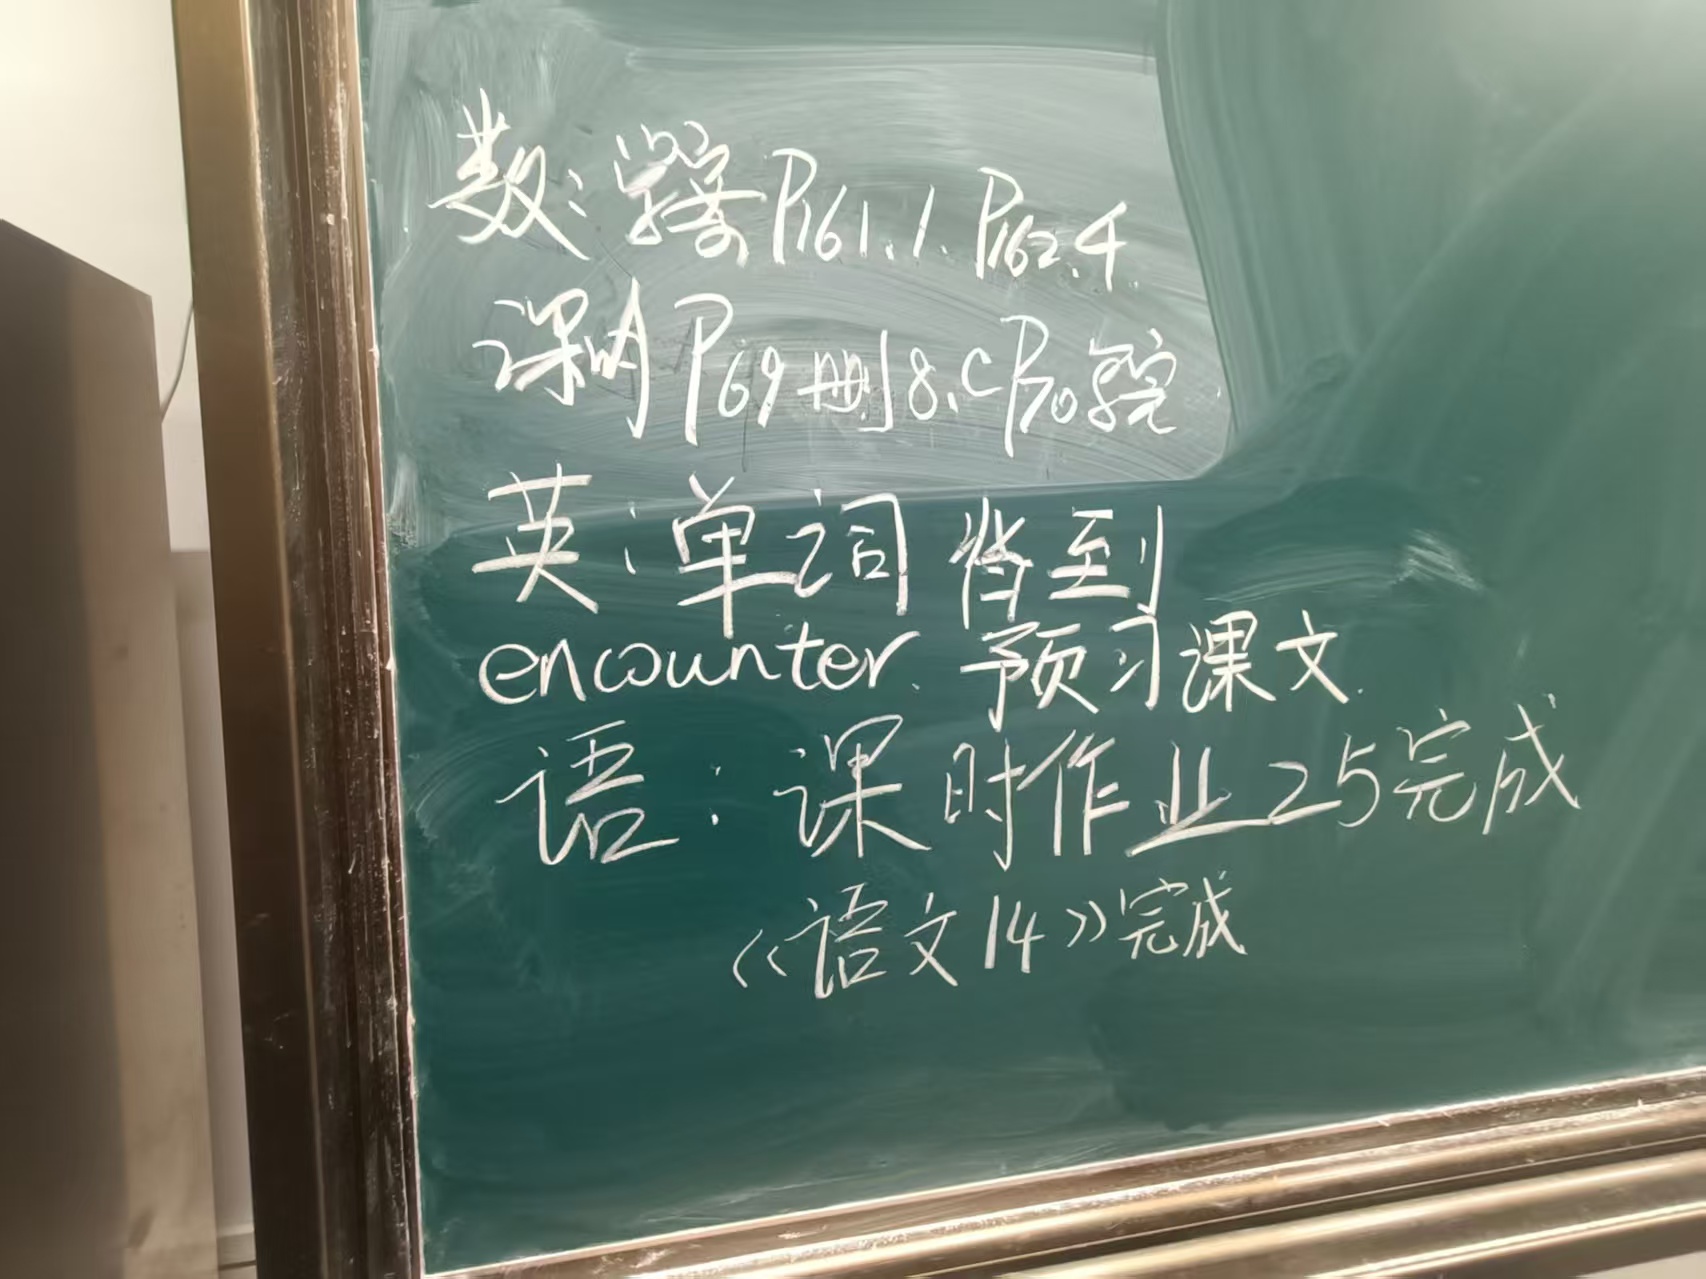 数:学案P161.1.P162.4
课内P69删8.CP70写完
英:单词背到
encounter.预习课文.
语:课时作业25完成
《语文14》完成